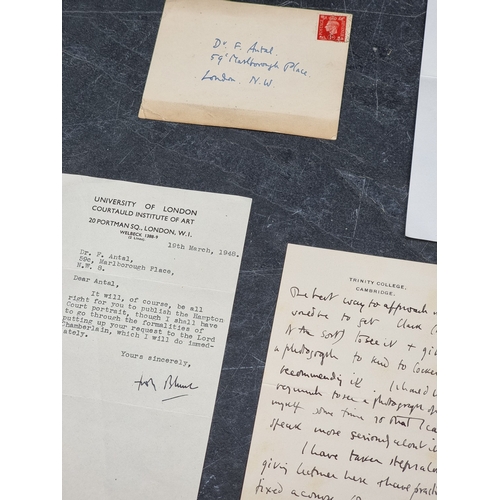 Dr. F. Antal.
59c Marlborough Place.
London. N.W
UNIVERSITY OF LONDON
COURTAULD INSTITUTE OF ART
20 PORTMAN SQ., LONDON, W.1.
WELBECK 1388-9
(2 Lines)
19th March, 1948.
Dr. F. Antal,
59c, Marlborough Place,
N.W. 8.
Dear Antal,
It will, of course, be all
right for you to publish the Hampton
Court portrait, though I shall have
to go through the formalities of
putting up your request to the Lord
Chamberlain, which I will do immed-
iately.
Yours sincerely,
Blunt
TRINITY COLLEGE,
CAMBRIDGE.
The best way to approach
to get Clark
to see it + giv
a photograph to send to
recommending it. I should
to see a photograph of
myself some time so that I ca
speak more seriously about it
I have taken steps about
giving lectures here I have
fixed a course